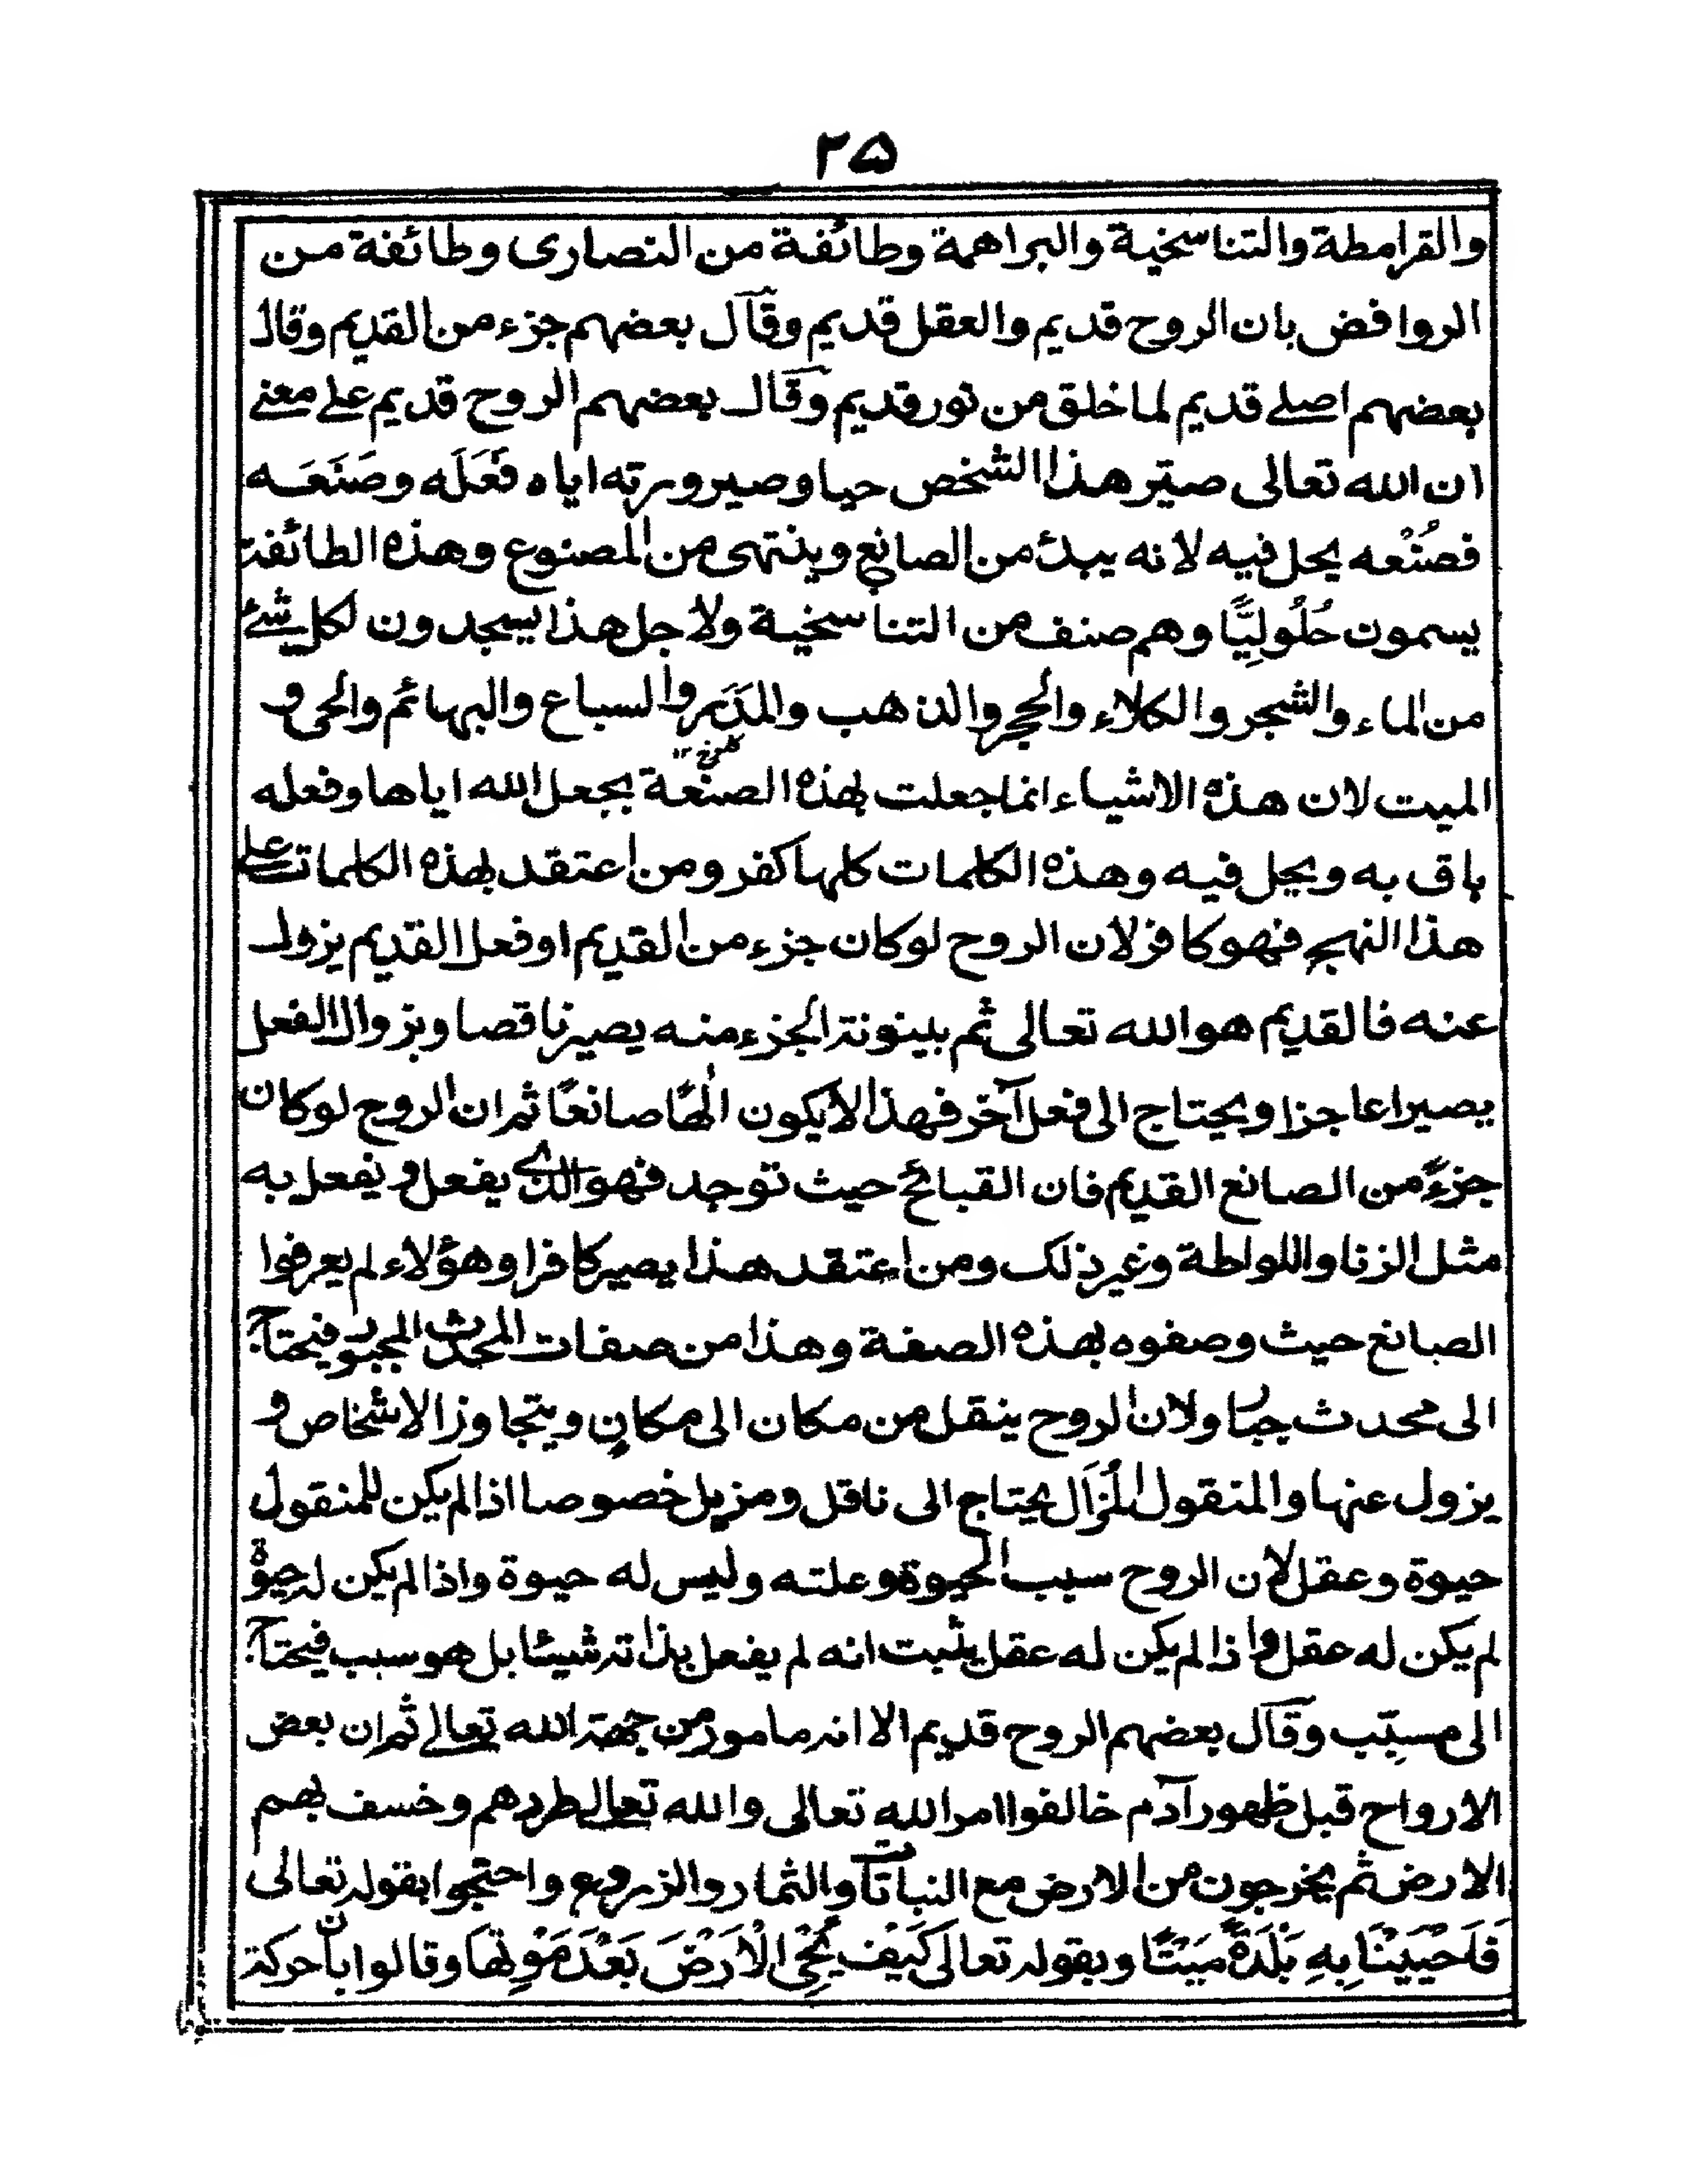 ۲۵
والقرامطة والتناسخية والبراهمة وطائفة من النصارى وطائفة من
الروافض بان الروح قديم والعقل قديم وقال بعضهم جزء من القديم وقال
بعضهم اصلے قديم لما خلق من نور قديم وقال بعضهم الروح قديم علے معنے
ان الله تعالى صيّر هذا الشخص حيا وصيرورته اياه فَعَلَه وصَنَعَه
فصُنْعه يحل فيه لانه يبدئ من الصانع وينتهى من المصنوع وهذه الطائفة
يسمون حُلُولِيًّا وهم صنف من التناسخية ولاجل هذا يسجدون لكل شئ
من الماء والشجر والكلاء والحجر والذهب والمَدَر والسباع والبهائم والحى و
الميت لان هذه الاشياء انما جعلت بهذه الصنعة بجعل الله اياها وفعله
باق به ويحل فيه وهذه الكلمات كلها كفر ومن اعتقد بهذه الكلمات علے
هذا النهج فهو كافر لان الروح لوكان جزء من القديم او فعل القديم يزول
عنه فالقديم هو الله تعالى ثم بينونة الجزء منه يصير ناقصا وبزوال الفعل
يصير اعاجزا ويحتاج الى فعل آخر فهذا لايكون الٰهًا صانعًا ثم ان الروح لوكان
جزءً من الصانع القديم فان القبائح حيث توجد فهو الذے يفعل ويفعل به
مثل الزنا واللواطة وغير ذلك ومن اعتقد هذا يصير كافرا وهؤلاء لم يعرفوا
الصانع حيث وصفوه بهذه الصفة وهذا من صفات المحدث المجبور فيحتاج
الى محدث جبار ولان الروح ينقل من مكان الى مكان ويتجاوز الاشخاص و
يزول عنها والمنقول المُزَال يحتاج الى ناقل ومزيل خصوصا اذا لم يكن للمنقول
حيوة وعقل لان الروح سبب الحيوة وعلته وليس له حيوة واذا لم يكن له حيوة
لم يكن له عقل واذا لم يكن له عقل يثبت انه لم يفعل بذاته شيئا بل هو سبب فيحتاج
الى مسبِّب وقال بعضهم الروح قديم الا انه مامور من جهة الله تعالے ثم ان بعض
الارواح قبل ظهور آدم خالفوا امر الله تعالى والله تعالے طردهم وخسف بهم
الارض ثم يخرجون من الارض مع النباتات والثمار والزروع واحتجوا بقوله تعالى
فَاَحْيَيْنَا بِهِ بَلْدَةً مَيْتًا وبقوله تعالى كَيْفَ يُحْىِ الْاَرْضَ بَعْدَ مَوْتِهَا وقالوا بان حركة